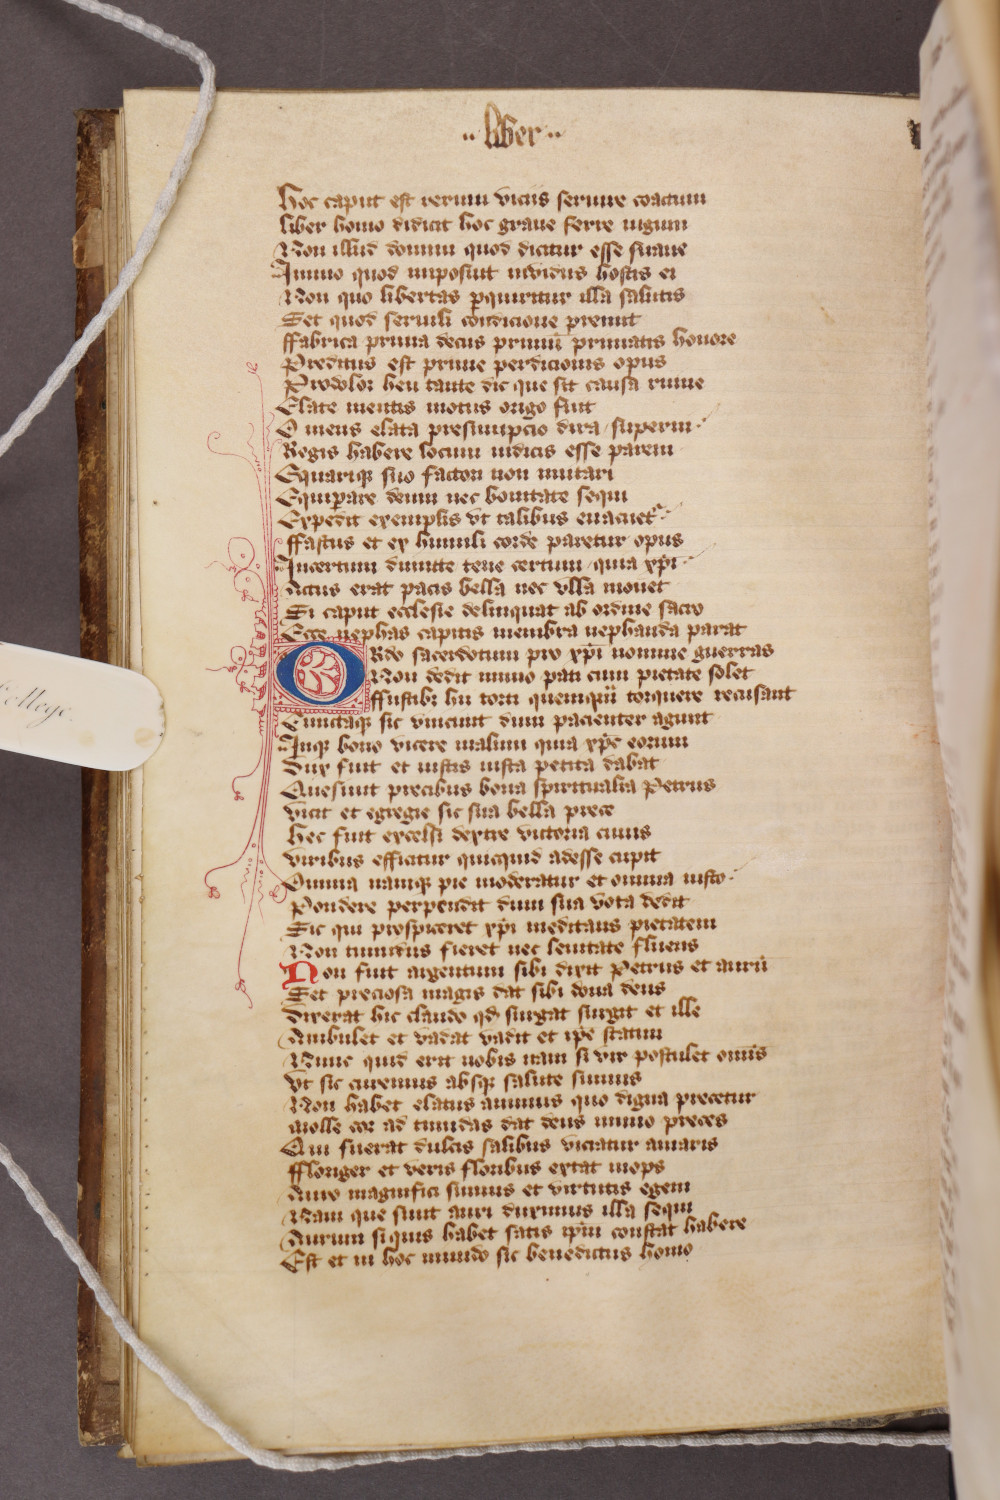 ·· liber ··
Hoc caput est rerum viciis seruire coactum
liber homo didicit hoc graue ferre iugum
Non illud domini quod dicitur esse suaue
Immo quod imposuit inuidus hostis ei
Non quo libertas perquiritur illa salutis
Set quod seruili condicione premit
ffabrica prima decus primum primatis honore
Preditus est prime perdicionis opus
Prodolor heu tante dic que sit causa ruine
Elate mentis motus origo fuit
O mens elata presumpcio dira superni
Regis habere locum iudicis esse parem
Equarique suo factori non imitari
Equiperare deum nec bonitate sequi
Expedit exemplis vt talibus euacuetur
ffastus et ex humili corde paretur opus
Incertum dimitte tene certum quia xpi
Actus erat pacis bella nec vlla mouet
Si caput ecclesie delinquat ab ordine sacro
Ecce nephas capitis membra nephanda parat
Ordo sacerdotum pro xpi nomine guerras
Non dedit immo pati cum pietate solet
ffustibus hii torti quemquam torquere recusant
Cunctaque sic vincunt dum pacienter agunt
Inque bono vicere malum quia xpc eorum
Dux fuit et iustis iusta petita dabat
Quesiuit precibus bona spiritualia Petrus
vicit et egregie sic sua bella prece
Hec fuit excelsi dextre victoria cuius
viribus efficitur quicquid adesse cupit
Omnia namque pie moderatur et omnia iusto
Pondere perpendit dum sua vota dedit
Sic qui prospiceret xpi meditans pietatem
Non timidus fieret nec leuitate fluens
Non fuit argentum sibi dixit Petrus et aurum
Set preciosa magis dat sibi dona deus
dixerat hic claudo quod surgat surgit et ille
Ambulet et vadat vadit et ipse statim
Nunc quid erit nobis nam si vir postulet omnis
vt sic curemus absque salute sumus
Non habet elatus animus quo digna precetur
Molle cor ad timidas dat deus immo preces
Qui fuerat dulcis salibus viciatur amaris
ffloriger et veris floribus extat inops
Auro magnifici sumus et virtutis egeni
Nam que sunt auri duximus illa sequi
Aurum si quis habet satis ipsum constat habere
Est et in hoc mundo sic benedictus homo
College.